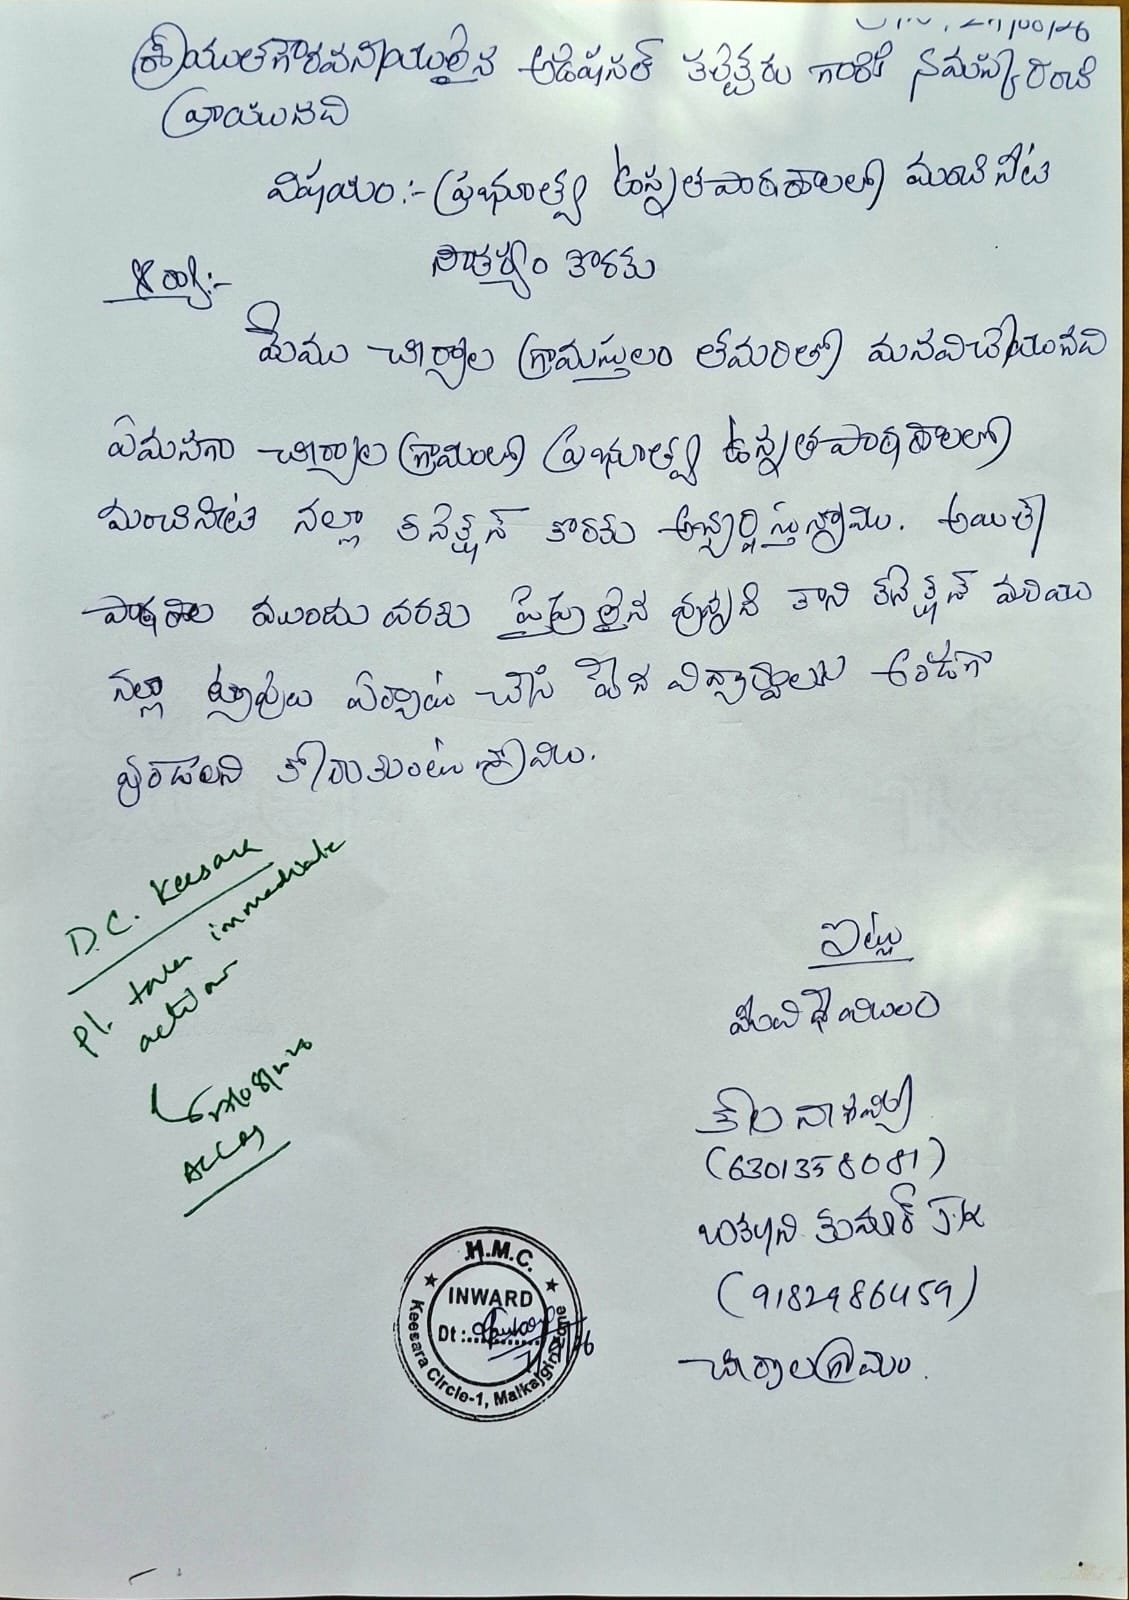 శ్రీయుత గౌరవనీయులైన అడిషనల్ కలెక్టరు గారికి నమస్కరించి
వ్రాయునది
విషయం :- ప్రభుత్వ ఉన్నత పాఠశాలలో మంచినీటి
సౌకర్యం కొరకు
ఆర్య :-
మేము చీర్యాల గ్రామస్తులం తమరితో మనవి చేయునది
ఏమనగా చీర్యాల గ్రామంలో ప్రభుత్వ ఉన్నత పాఠశాలలో
మంచినీటి నల్లా కనెక్షన్ కొరకు అభ్యర్థిస్తున్నాము. అయితే
పాఠశాల ముందు వరకు పైపు లైన్ వున్నది కాని కనెక్షన్ మరియు
నల్లా ట్యాపులు ఏర్పాటు చేసి పేద విద్యార్థులకు అండగా
వుండాలని కోరుకుంటున్నాము.
D.C. Keesara
Pl. take immediate
action
ఇట్లు
మీ విధేయులం
(6301358081)
కుమార్ J.K
(9182986459)
చీర్యాల గ్రామం.
H.M.C.
INWARD
Dt :
Keesara Circle-1, Malkajgiri Zone